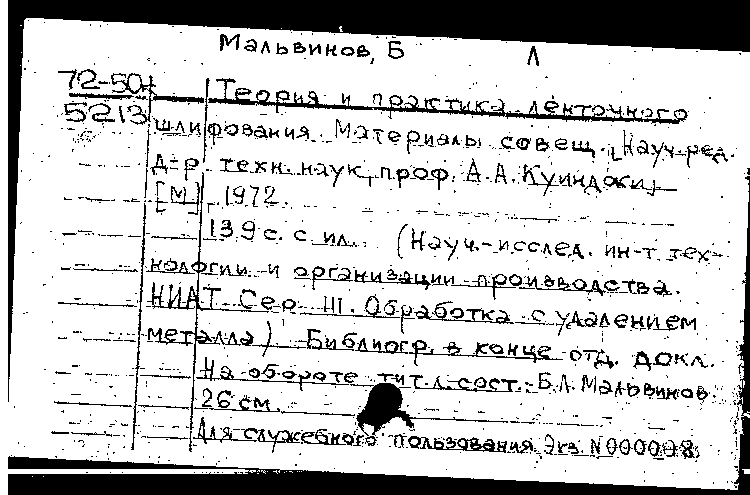 Мальвинов, Б Л
72-50т
5213
Теория и практика ленточного
шлифования. Материалы совещ. [Науч. ред.
д-р. техн. наук, проф. А.А. Куинджи]
[М] 1972.
139 с. с ил. (Науч.-исслед. ин-т тех-
нологии и организации производства.
НИАТ Сер III. Обработка с удалением
металла) Библиогр. в конце отд. докл.
На обороте тит. л. сост.: Б.Л. Мальвинов.
26 см.
Для служебного пользования. Экз. N000008